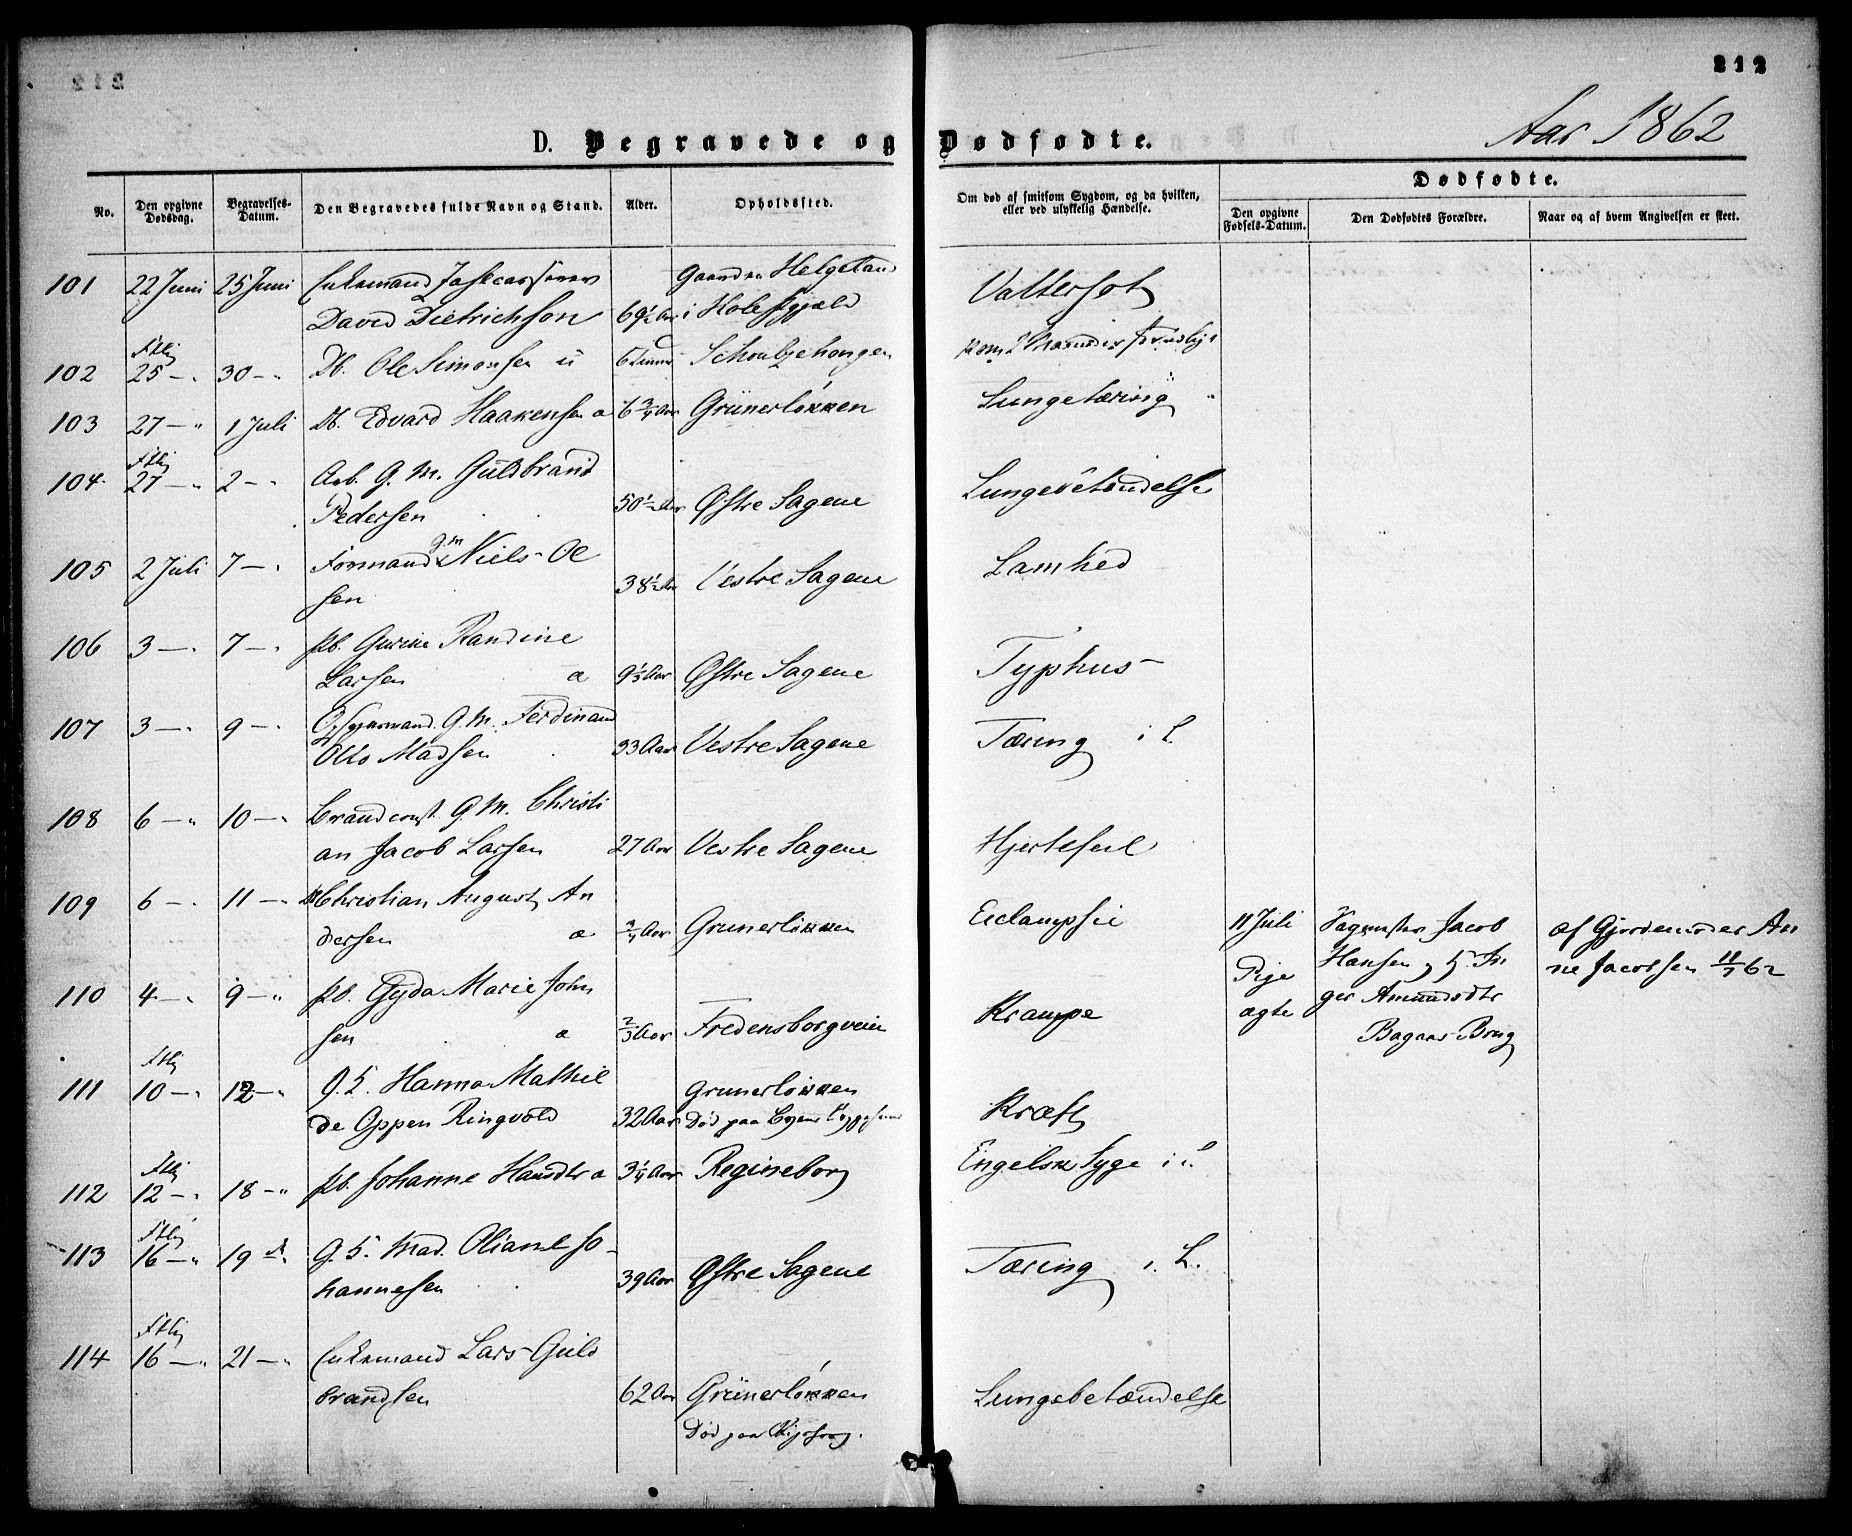 212
Aar 1862
D. Begravede og Dødfødte.
No.
Den opgivne Dødsdag.
Begravelses-Datum.
Den Begravedes fulde Navn og Stand.
Alder.
Opholdssted.
Om død af smitsom Sygdom, og da hvilken, eller ved ulykkelig Hændelse.
Dødfødte.
Den opgivne Fødsels-Datum.
Den Dødfødtes Forældre.
Naar og af hvem Angivelsen er skeet.
101 22 Juni 25 Juni Enkemand Gaarden Helgeland
David Dietrichson 69½ Aar i Hole Pgjæld Vattersot
102 25 — 30 — Db. Ole Simonsen u 6 Timer
103 27 — 1 Juli Db. Edvard Haakensen a 6¾ Aar Grünerløkken Lungetæring
104 27 — 2 — Arb. G. M. Guldbrand
Pedersen 50½ Aar Østre Sagene Lungebetændelse
105 2 Juli 7 — Formand g. m. Niels Ol
sen 38½ Aar Vestre Sagene Lamhed
106 3 — 7 — Pb. Gurine Randine
Larsen a 9⅓ Aar Østre Sagene Typhus
107 3 — 9 — G. M. Ferdinand
Otto Madsen 33 Aar Vestre Sagene Tæring i L
108 6 — 10 — Brandconst. G. M. Christi
an Jacob Larsen 27 Aar Vestre Sagene Hjertefeil
109 6 — 11 — Db Christian August An
dersen a ¾ Aar Grünerløkken Eclampsie
11 Juli
Pige
ægte
Jacob
Hansen og H. In
ger Amundsdtr
Bagaas Brug
af Gjordemoder An
ne Jacobsen 11/7 62
110 4 — 9 — Pb. Gyda Marie John
sen a ⅔ Aar Fredensborgveien Krampe
111 10 — 12 — G. H. Hanna Mathil
de Oppen Ringvold 32 Aar Grunerløkken
Død paa Byens Sygehuus Kræft
112 12 — 18 — Pb. Johanne Hansdtr a 3¼ Aar Regineborg Engelsk Syge i L
113 16 — 19 — G. H. Mad. Oliane Jo
hannesen 39 Aar Østre Sagene Tæring i L.
114 16 — 21 — Enkemand Lars Guld
brandsen 62 Aar Grünerløkken
Død paa Lungebetændelse